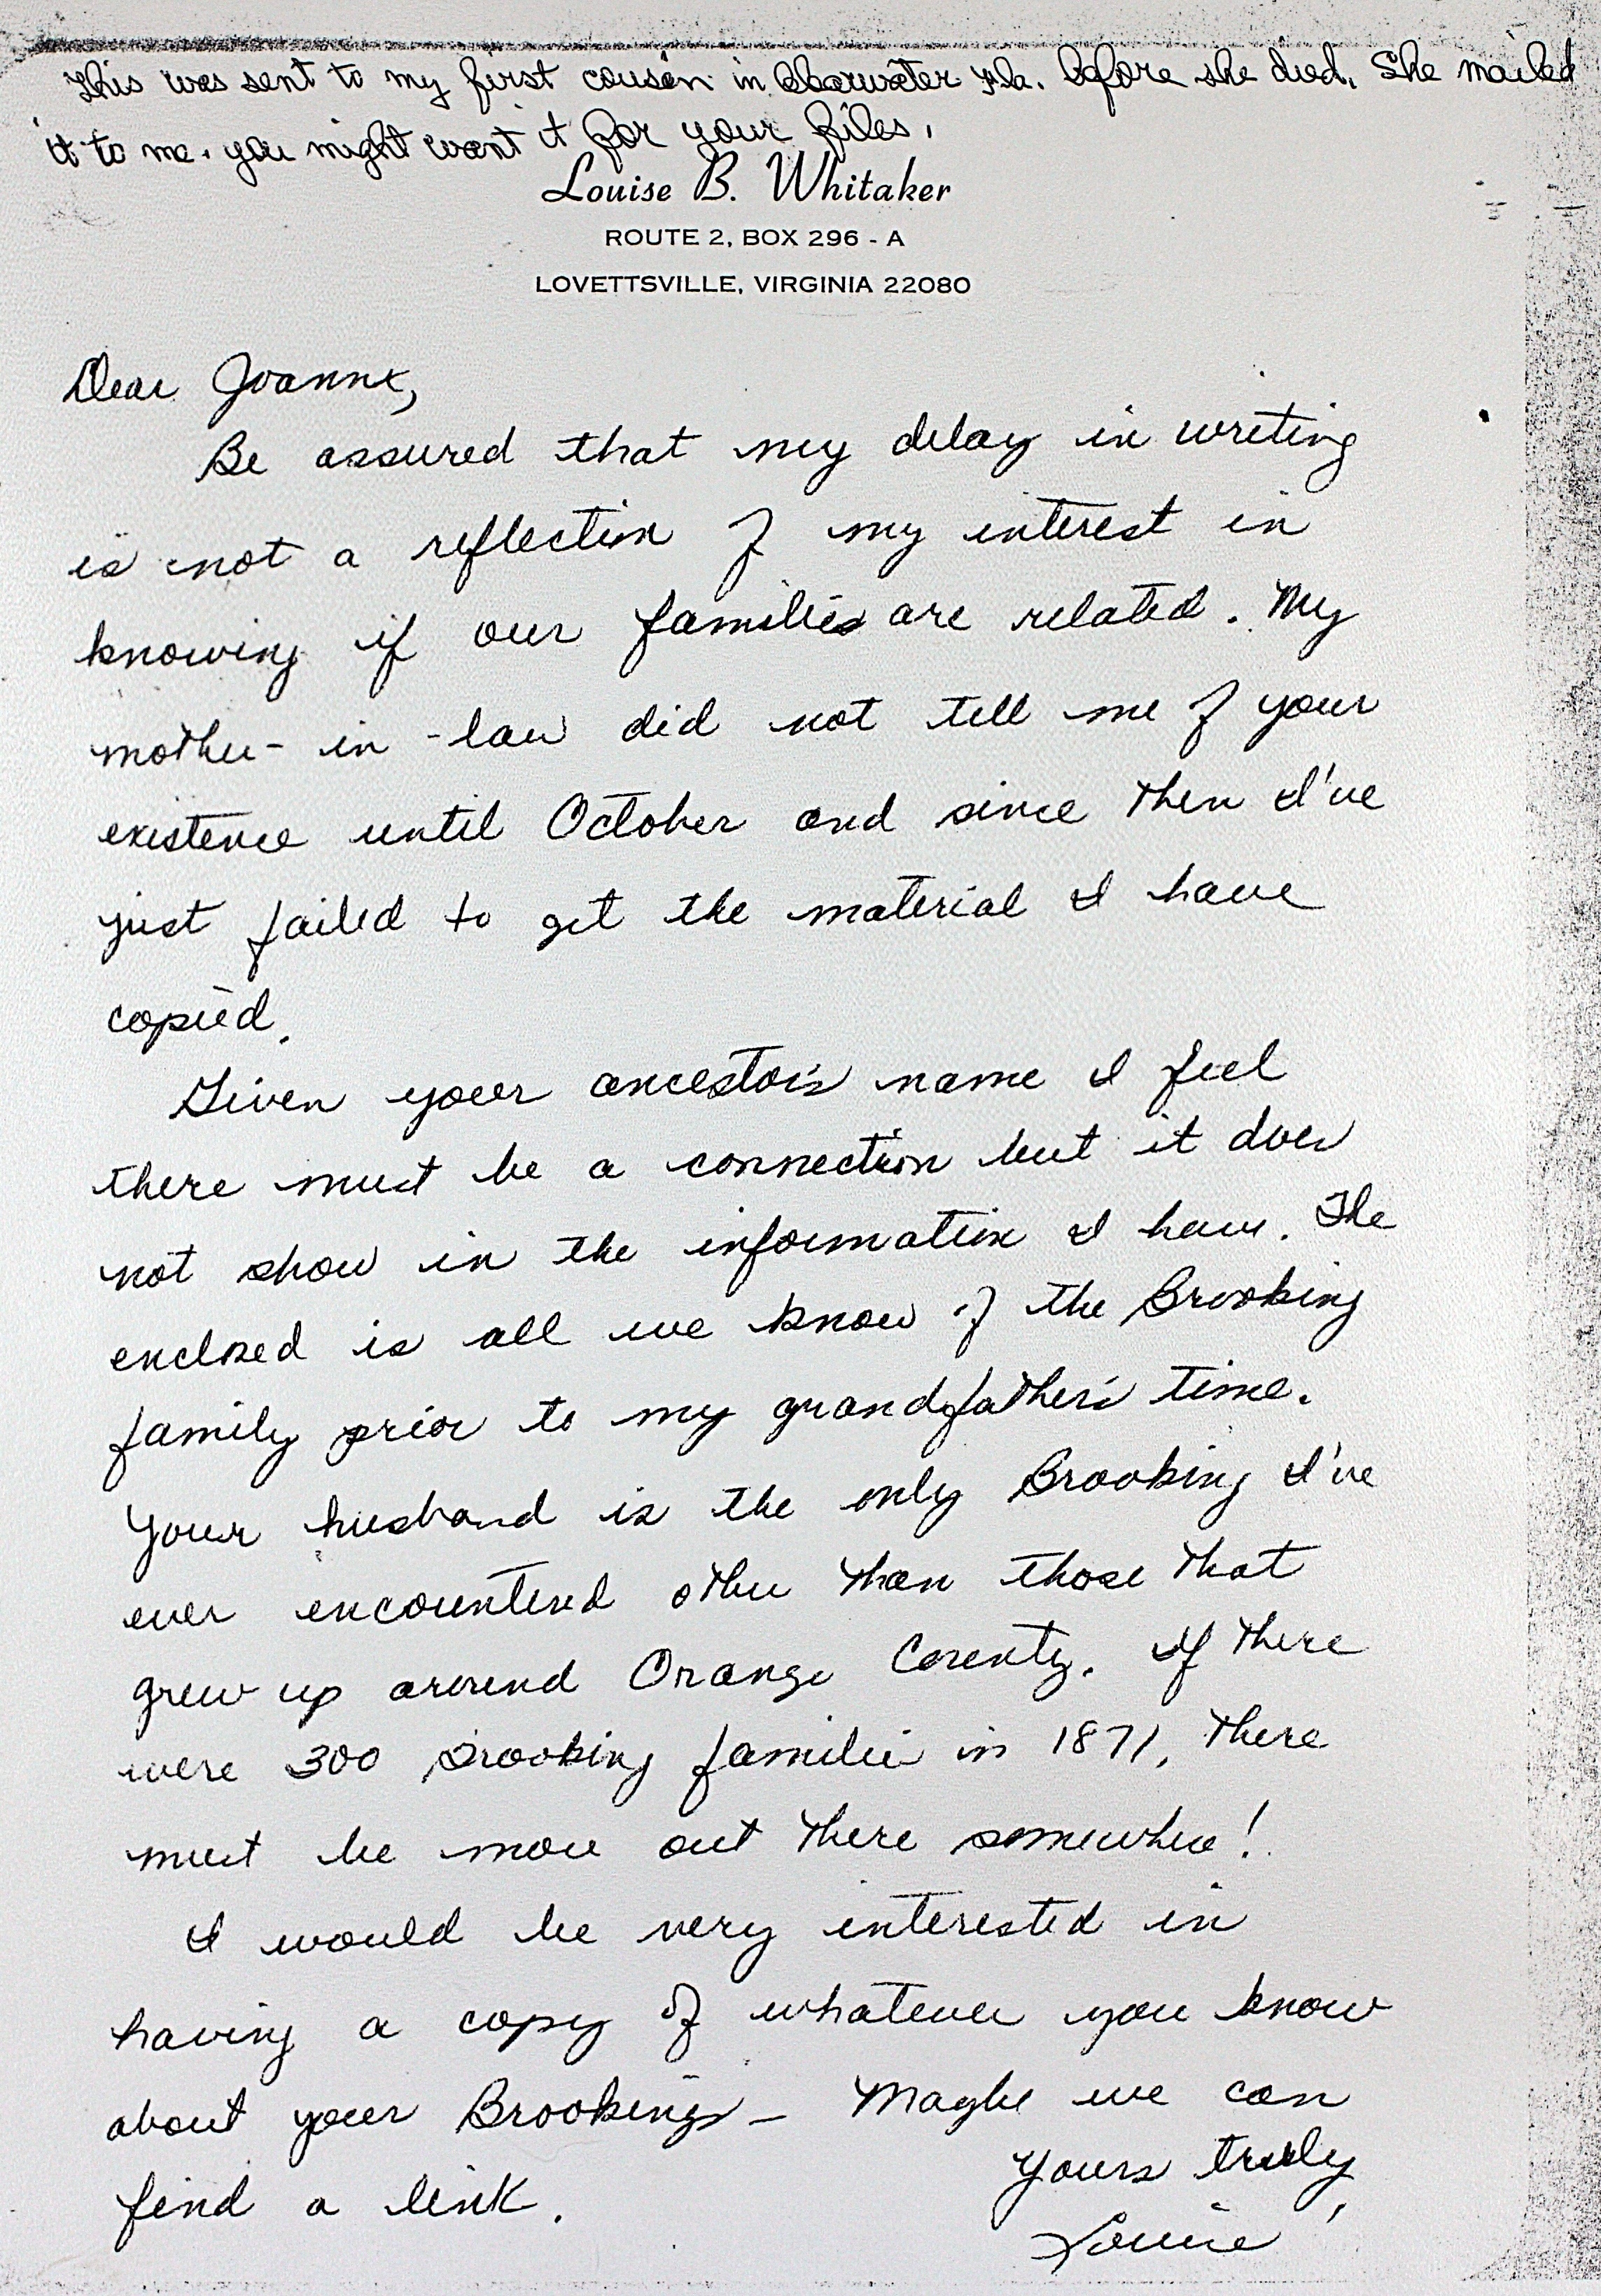 This was sent to my first cousin in Clearwater Fla. before she died. She mailed
it to me. you might want it for your files.
Louise B. Whitaker
ROUTE 2, BOX 296 - A
LOVETTSVILLE, VIRGINIA 22080
Dear Joanne,
Be assured that my delay in writing
is not a reflection of my interest in
knowing if our families are related. My
mother-in-law did not tell me of your
existence until October and since then I've
just failed to get the material I have
copied.
Given your ancestor's name I feel
there must be a connection but it does
not show in the information I have. The
enclosed is all we know of the Brooking
family prior to my grandfather's time.
Your husband is the only Brooking I've
ever encountered other than those that
grew up around Orange County. If there
were 300 Brooking families in 1871, there
must be more out there somewhere!
I would be very interested in
having a copy of whatever you know
about your Brookings - Maybe we can
find a link.
Yours truly,
Louise